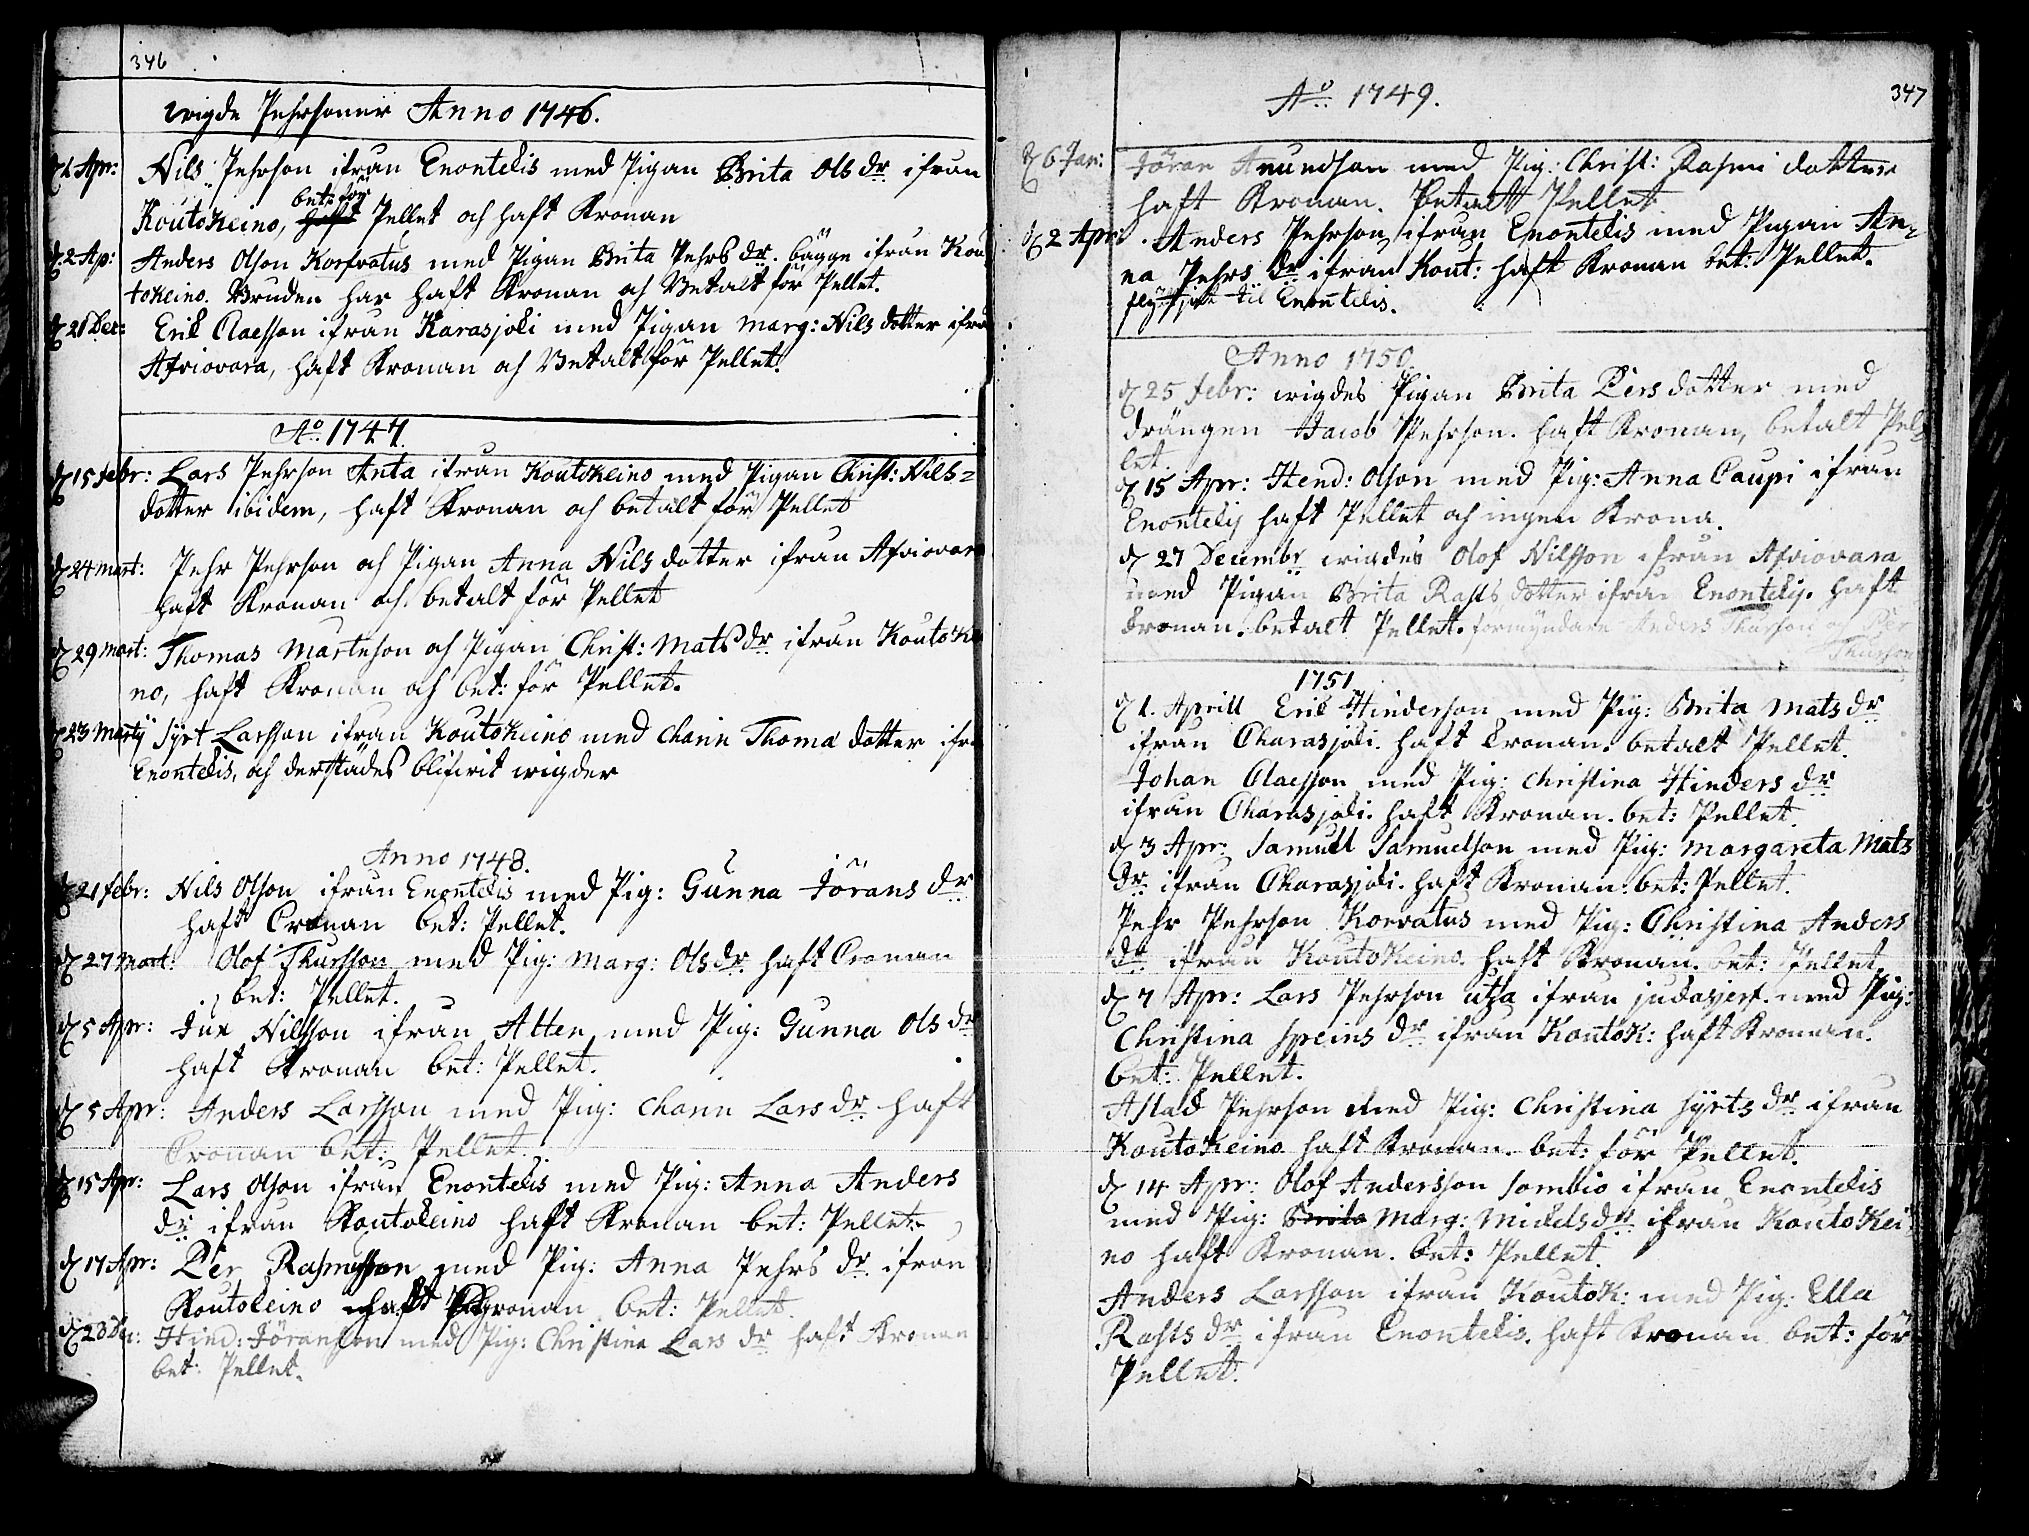 346
wigde Pehrsoner Anno 1746.
d 1 Apr: Nils Pehrson ifrån Enontekis med Pigan Brita Ols dr ifrån
bet: för
Koutokeino, haft Pellet och haft Kronan
d. 2 Ap: Anders Olson Korfvatus med Pigan Brita Pehrs dr. bägge ifrån Kou
tokeino. Bruden har haft Kronan och Betalt för Pellet.
d 26 Dec: Erik Claesson ifrån Karasjoki med Pigan Marg: Nils dotter ifrå
Afviovara, haft Kronan och Betalt för Pellet.
Ao. 1747.
d 15 febr: Lars Pehrson Anta ifrån Koutokeino med Pigan Christ: Nils=
dotter ibidem, haft Kronan och betalt för Pellet
d 24 mart: Pehr Pehrson och Pigan Anna Nils dotter ifrån Afviovara
haft Kronan och betalt för Pellet
d 29 mart: Thomas Marteson och Pigan Christ: Mats dr ifrån Koutoke
no, haft Kronan och bet: för Pellet.
d 23 Martij Syrt Larsson ifrån Koutokeino med Charin Thoma dotter ifrå
Enontekis, och derstädes blifvit wigder
Anno 1748.
d 21 febr: Nils Olson ifrån Enontekis med Pig: Gunna Jörans dr
haft Cronan bet: Pellet.
d 27 Mart: Olof Thursson med Pig: Marg: Ols dr haft Cronan
bet: Pellet.
d 5 Apr: Jun Nilsson ifrån Alten med Pig: Gunna Ols dr
haft Kronan bet: Pellet.
d 5 Apr: Anders Larsson med Pig: Charin Lars dr haft
Cronan bet: Pellet.
d 15 Apr: Lars Olson ifrån Enontekis med Pig: Anna Anders
dr ifrån Koutokeino haft Kronan bet: Pellet.
d 17 Apr: Per Rasmusson med Pig: Anna Pehrs dr ifrån
Koutokeino haft Kronan bet: Pellet.
d 28 Dec: Hind: Jöranson med Pig: Christina Lars dr haft Kronan
bet: Pellet.
347
Ao. 1749.
d 6 Jan: Jöran Amundson med Pig: Christ: Rasmi dotter
haft Kronan. Betalt Pellet
d 2 Apr: Anders Pehrson ifrån Enontekis med Pigan An=
na Pehrs dr ifrån Kout: haft Kronan bet: Pellet.
til Enontekis.
Anno 1750.
d 25 febr: wigdes Pigan Brita Pers dotter med
drängen Jacob Pehrson. haft Kronan, betalt Pel=
let.
d 15 Apr: Hend: Olson med Pig: Anna Caupi ifrån
Enontekis haft Pellet och ingen Krona.
d 27 Decembr wigdes Olof Nilsson ifrån Afviovara
med Pigan Brita Rasts dotter ifrån Enontekis. haft
Cronan. betalt Pellet. förmyndare Anders Thurson Per
Thurson
1751
d 1. Aprill Erik Hinderson med Pig: Brita Mats dr
ifrån Charasjoki. haft Cronan. betalt Pellet.
Johan Claesson med Pig: Christina Hinders dr
ifrån Charasjoki. haft Kronan. bet: Pellet.
d 3 Apr: Samuel Samuelson med Pig: Margareta Mats
dr ifrån Charasjoki. haft Kronan. bet: Pellet.
Pehr Pehrson Korvatus med Pig: Christina Anders
dr ifrån Koutokeino. haft Kronan. bet: Pellet.
d 7 Apr: Lars Pehrson utza ifrån med Pig:
Christina Speins dr ifrån Koutok: haft Kronan.
bet: Pellet.
Aslad Pehrson med Pig: Christina Syrts dr ifrån
Koutokeino haft Kronan. bet: för Pellet.
d 14 Apr: Olof Andersson Sombio ifrån Enontekis
med Pig: Brita Marg: Mickels dr ifrån Koutokei
no haft Kronan. bet: Pellet.
Anders Larsson ifrån Koutok: med Pig: Ella
Rasts dr ifrån Enontekis. haft Kronan bet: för
Pellet.